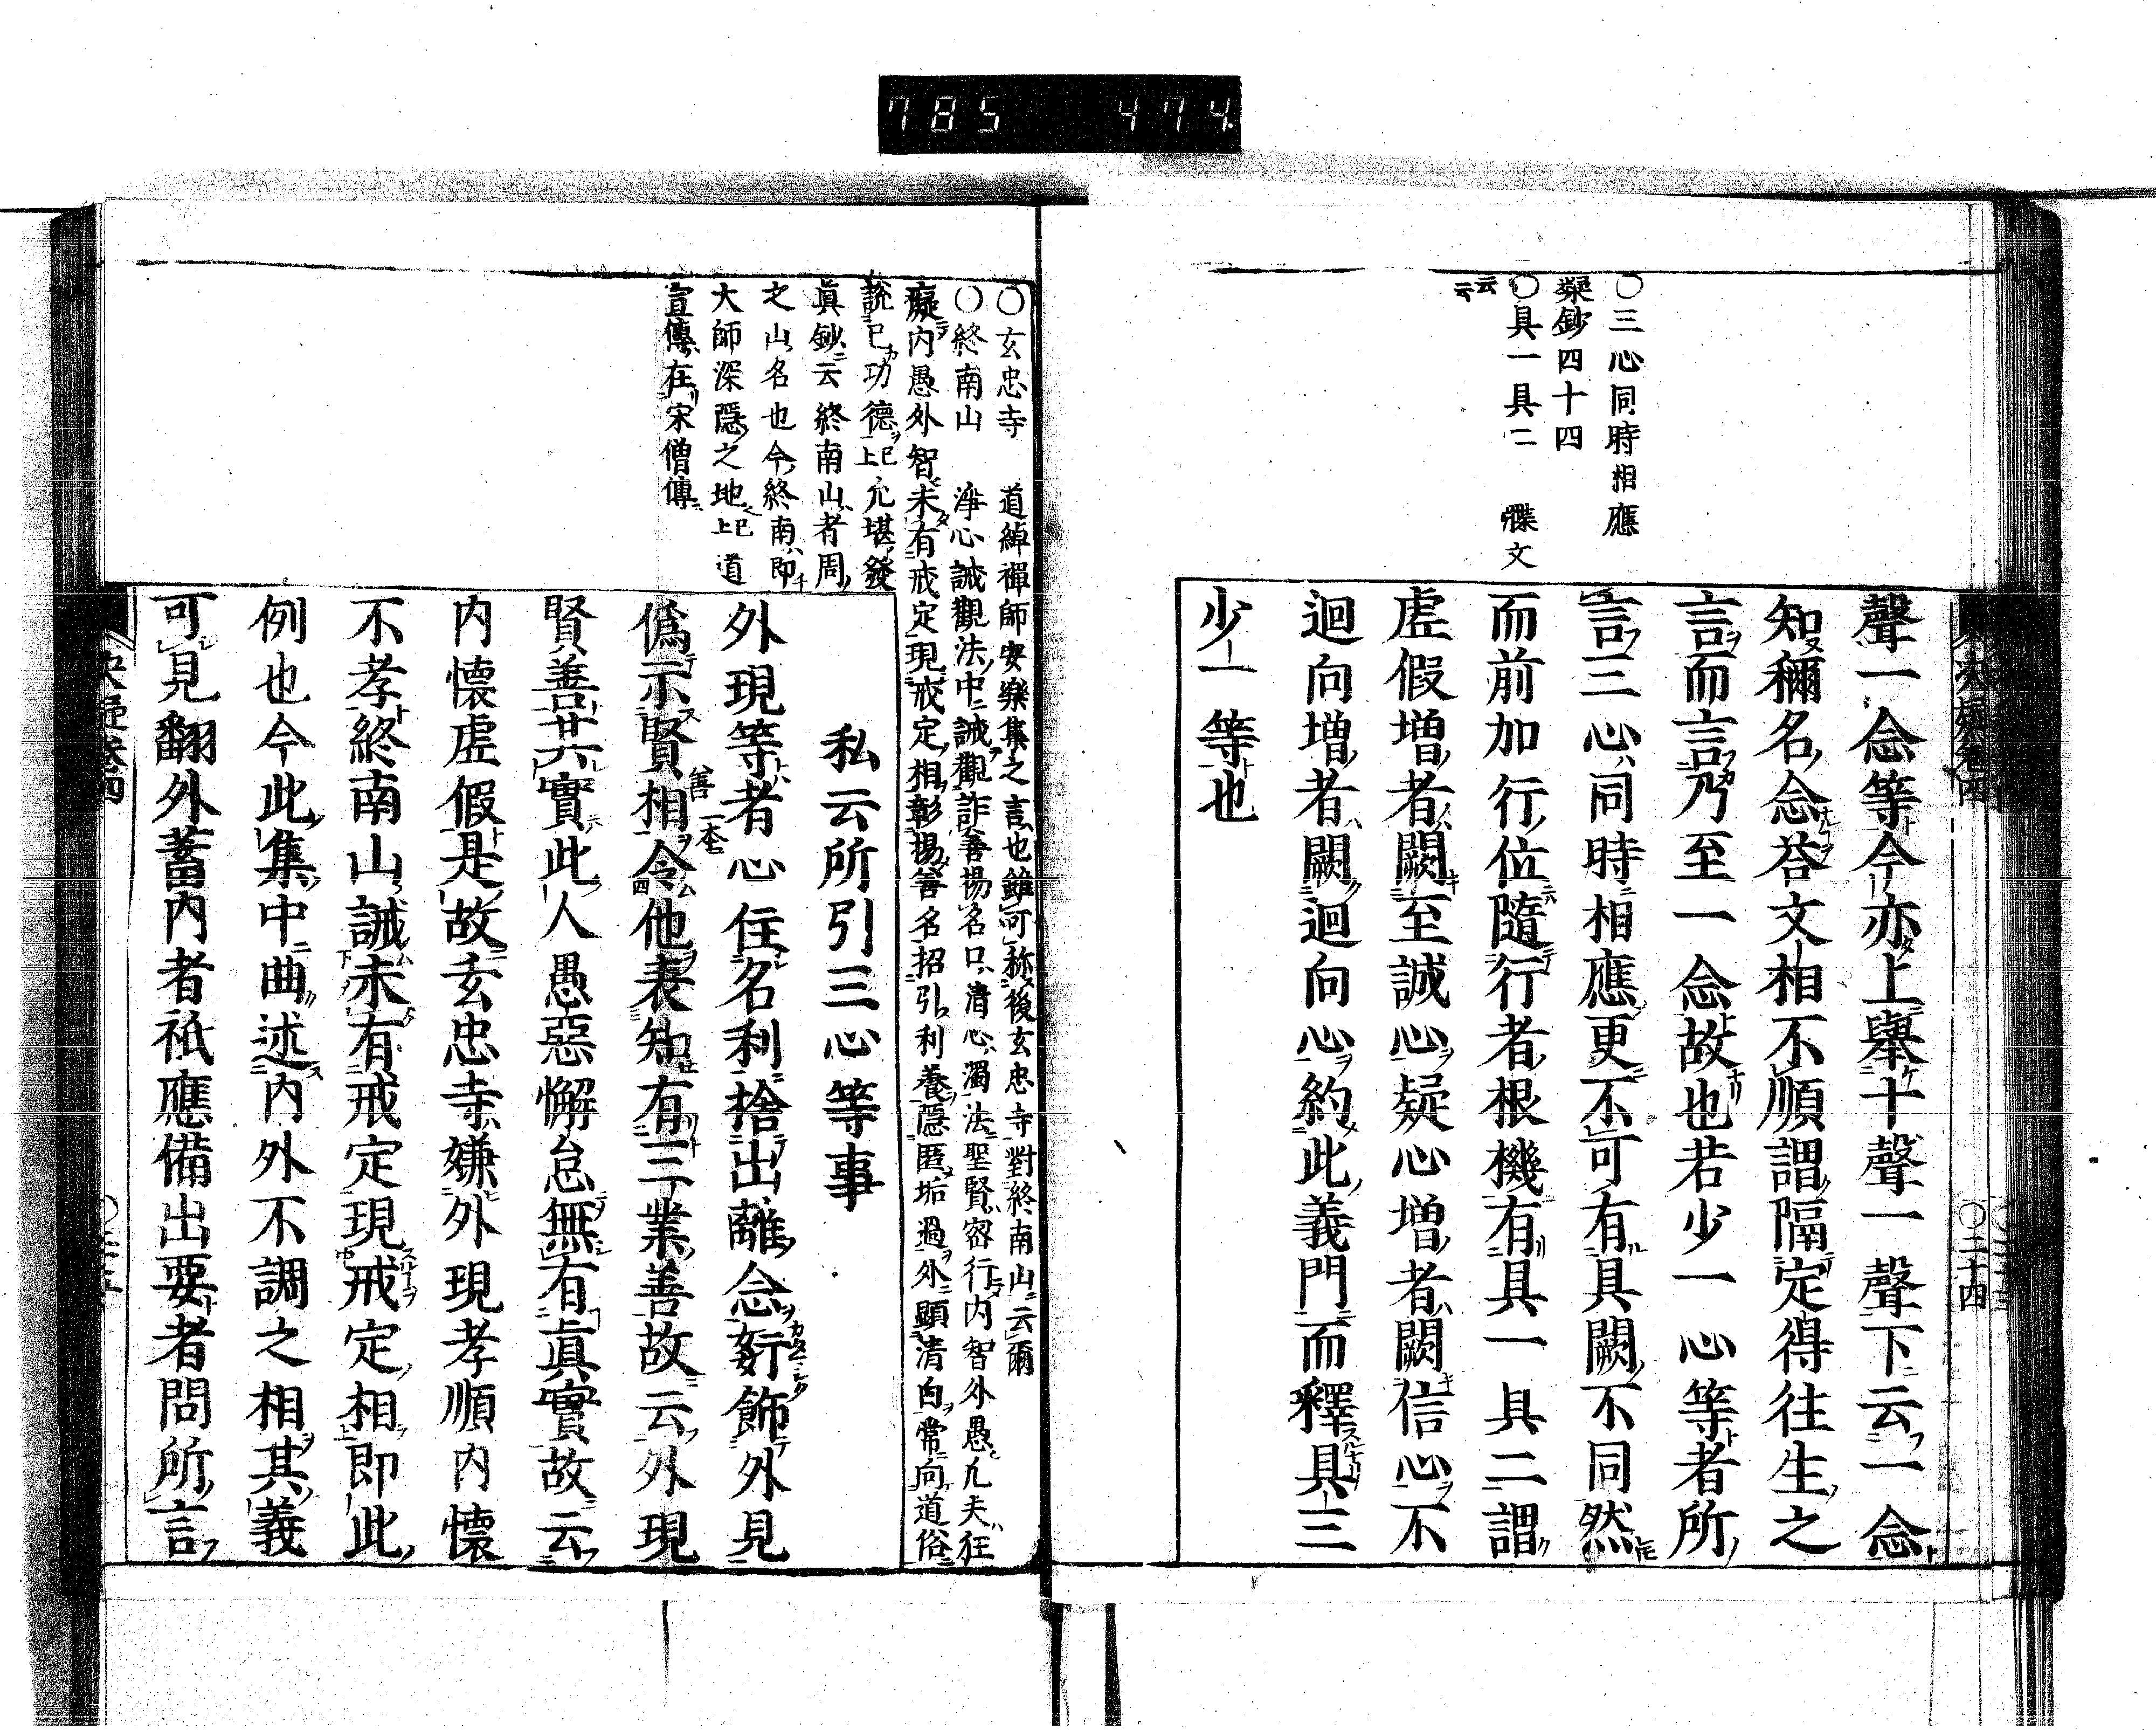 785 474
〇三心同時相應
槊鈔四十四
〇具一具二 牒文
云云
聲一念等今亦上舉十聲一聲下云一念
知稱名念荅文相不順謂隔定得往生之
言而言乃至一念故也若少一心等者所
言三心同時相應更不可有具闕不同然
而前加行位隨行者根機有具一具二謂
虛假增者闕至誠心疑心增者闕信心不
迴向增者闕迴向心約此義門而釋具三
少一等也
〇二十四
〇玄忠寺 道綽禪師安樂集之言也雖可称後玄忠寺對終南山云爾
〇終南山 淨心誡觀法中誡觀詐善揚名口清心濁法聖賢密行内智外愚凢夫狂
癡内愚外智未有戒定現戒定相彰揚善名招引利養隱匿垢過外顯清白常向道俗
說已功德已上允堪發
眞鈔云終南山者周
之山名也今終南即
大師深隱之地已上道
宣傳在宋僧傳
私云所引三心等事
外現等者心住名利捨出離念姧飾外見
僞示賢相令他表知有三業善故云外現
善一本
賢善其實此人愚惡懈怠無有眞實故云
内懷虛假是故玄忠寺嫌外現孝順内懷
不孝終南山誡未有戒定現戒定相即此
例也今此集中曲述内外不調之相其義
可見翻外蓄内者祇應備出要者問所言